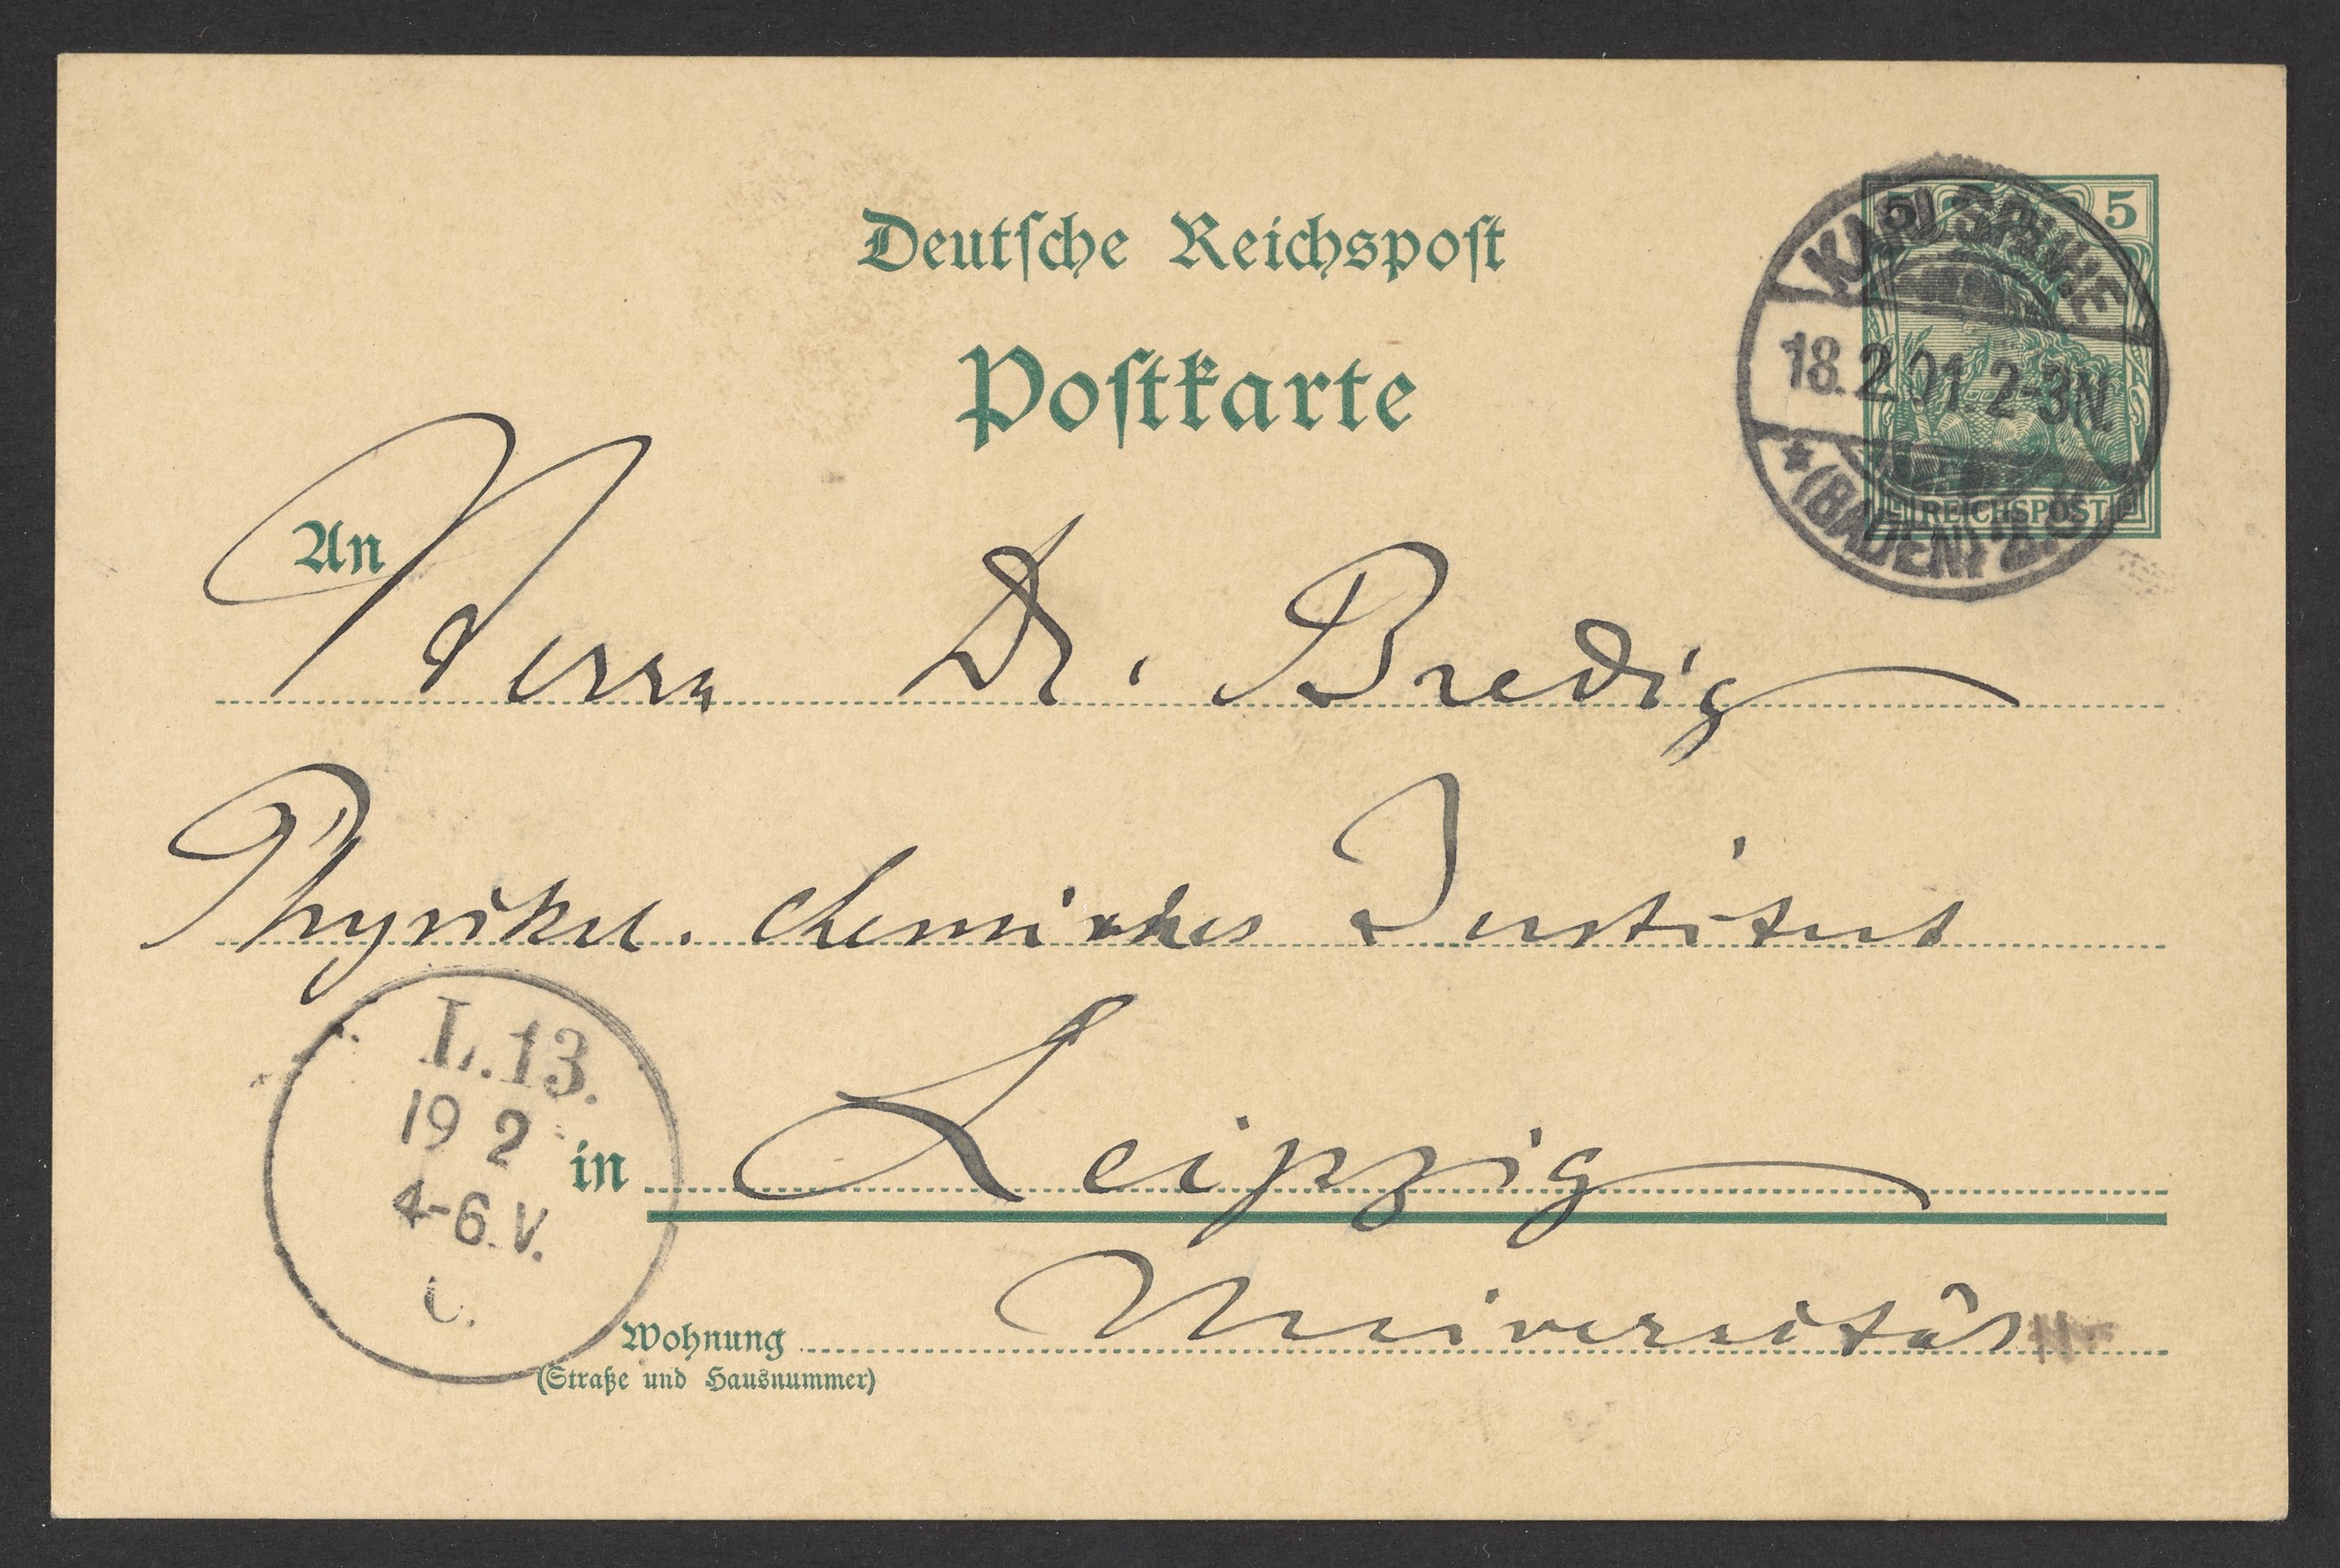 Deutsche Reichspost
Postkarte
5 5
KARLSRUHE
18.2.01.2-3N.
* (BADEN)
REICHSPOST
An Herrn Dr. Bredig
Physikal. chemisches Institut
L.13.
19 2
4-6.V.
in Leipzig
Wohnung Universität
(Straße und Hausnummer)